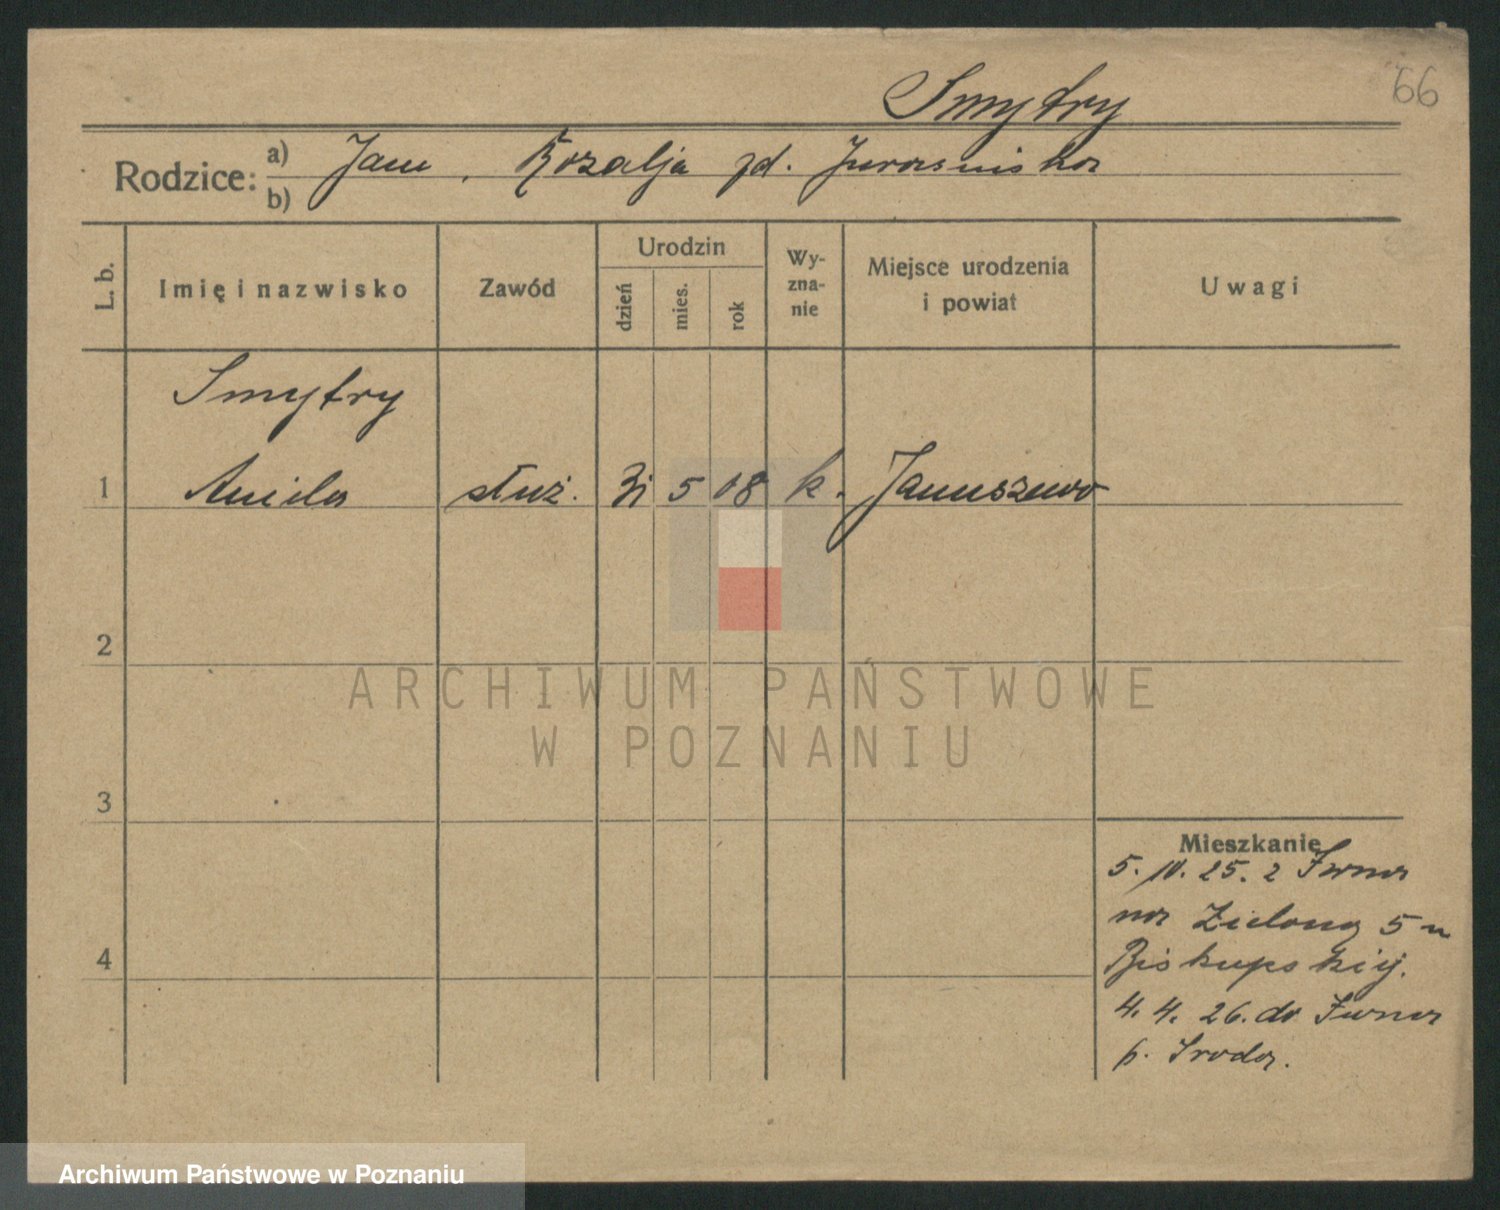 66
Smytry
Rodzice: a) Jan, Rozalja zd.
b)
L. b.
Imię i nazwisko
Zawód
Urodzin
dzień
mies.
rok
Wy-
zna-
nie
Miejsce urodzenia
i powiat
Uwagi
Smytry
1 Aniela służ. 31 5 08 k. Januszewo
2
3
4
Mieszkanie
5. 10. 25. z
na Zielona 5 u
Biskupskiej.
4. 4. 26. do
p. Sroda.
ARCHIWUM PAŃSTWOWE
W POZNANIU
Archiwum Państwowe w Poznaniu